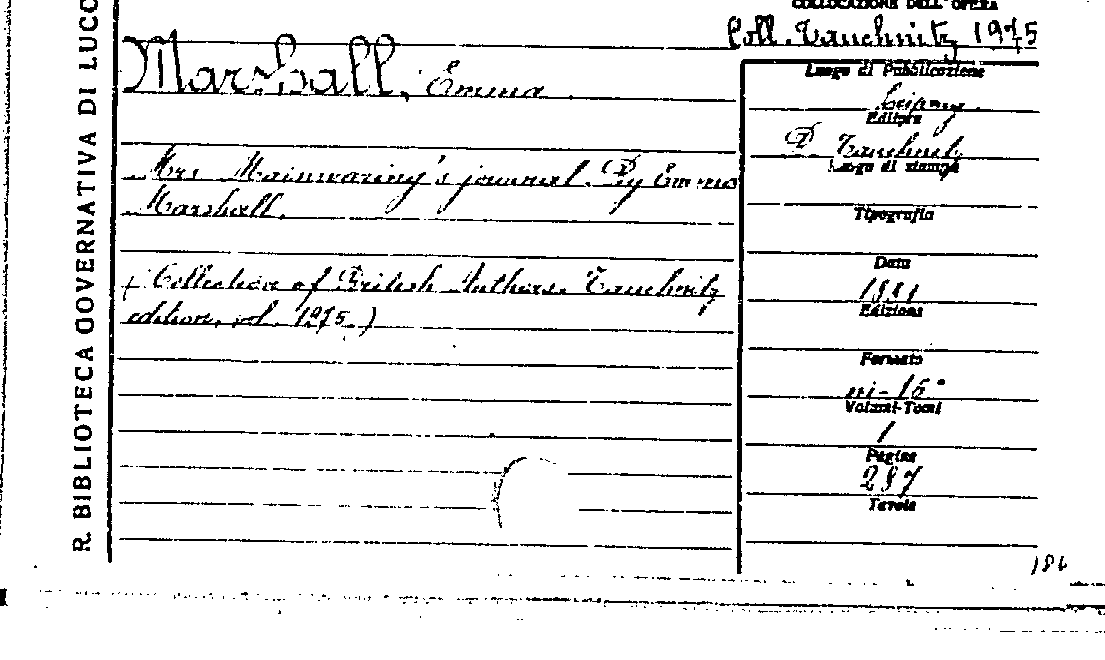 COLLOCAZIONE DELL'OPERA
Coll. Tauchnitz 1975
R. BIBLIOTECA GOVERNATIVA DI LUCC
Marshall, Emma
Mrs Mainwaring's journal. By Emma
Marshall.
(Collection of British Authors. Tauchnitz
edition, vol. 1975.)
Luogo di Pubblicazione
Leipzig
Editore
B. Tauchnitz
Luogo di stampa
Tipografia
Data
1881
Edizione
Formato
in-16°
Volumi-Tomi
1
Pagine
287
Tavole
186